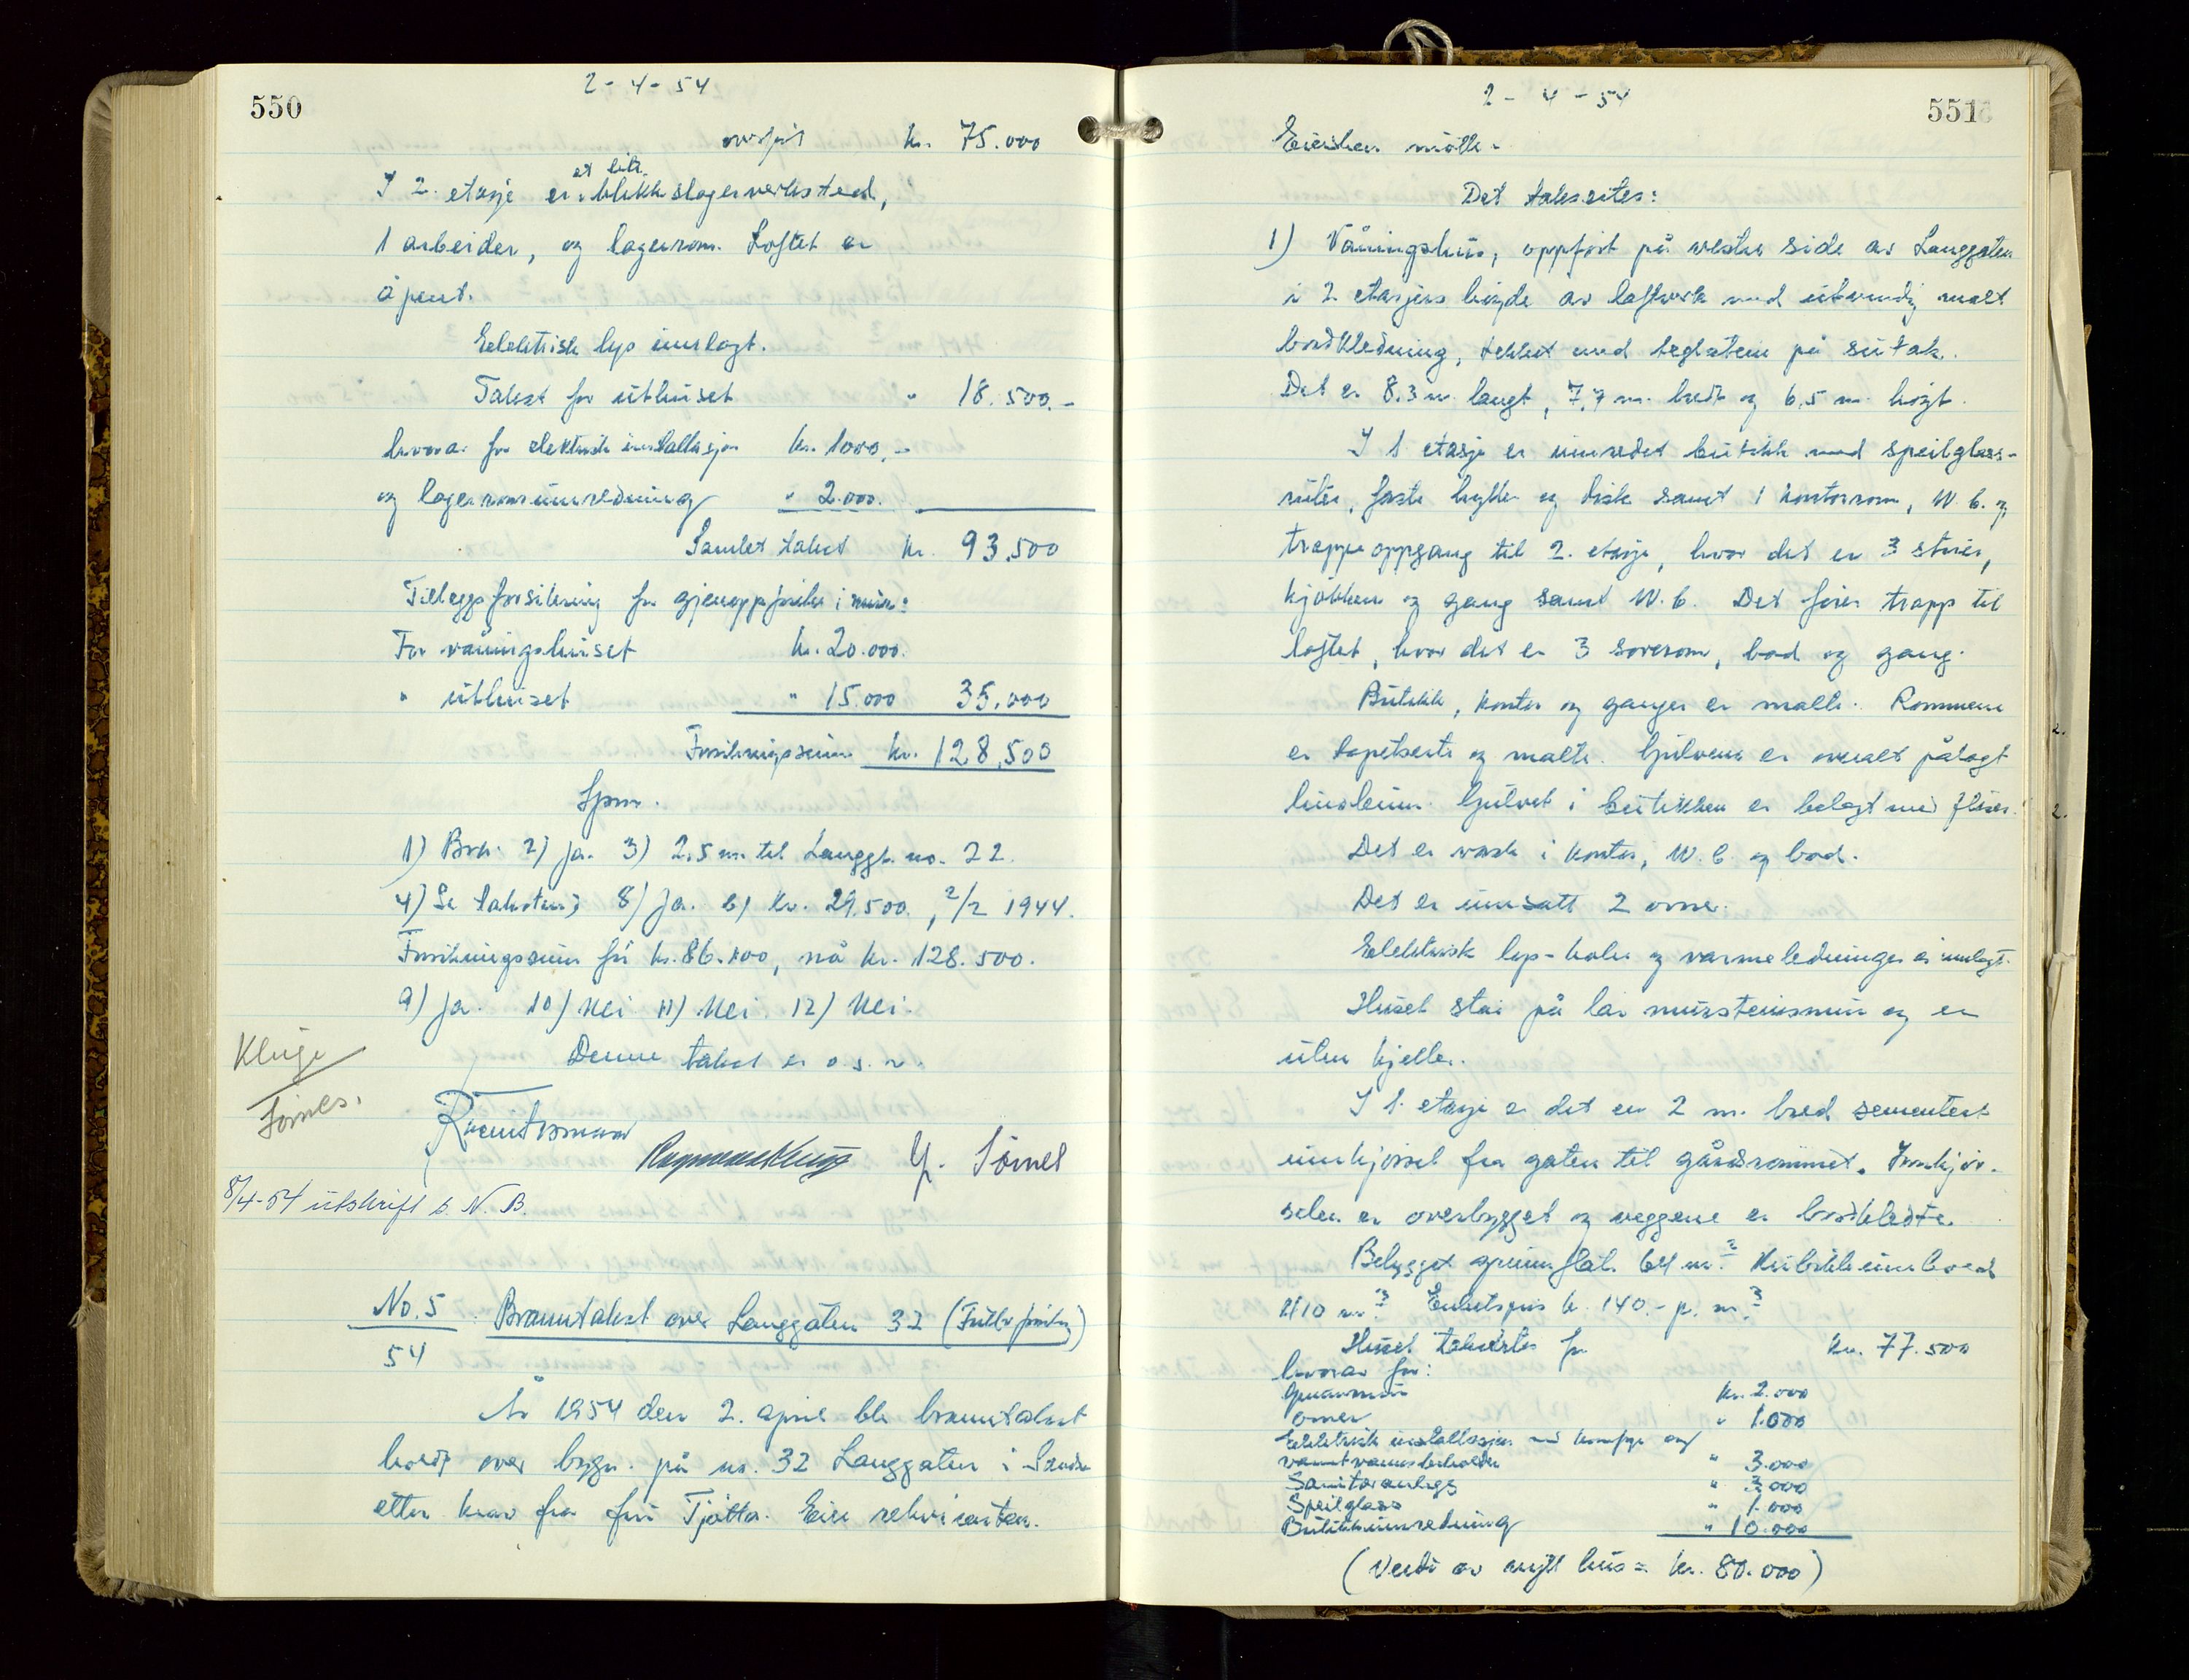 550
2-4-54
overført kr. 75.000
I 2. etasje er et lite blikkslagerverksted,
1 arbeider, og lagerrom. Loftet er
åpent.
Eelektrisk lys innlagt.
Takst for uthuset " 18.500.-
hvorav for elektrisk installasjon kr. 1000.-
og lagerrominnredning " 2.000.
Samlet takst kr. 93.500
Tilleggsforsikring for gjenoppførelse i mur:
For våningshuset kr. 20.000.
" uthuset " 15.000 35.000
Forsikringssum kr. 128.500
Spm.
1) Bra. 2) Ja. 3) 2.5 m. til Langgt. no. 22.
4) Se taksten; 8) Ja. b) kr. 29.500, 2/2 1944.
Forsikringssum før kr. 86.100, nå kr. 128.500.
9) Ja. 10) Nei 11) Nei. 12) Nei.
Denne takst er o.s.v.
Kluge
G. Sømel
8/4-54 utskrift s. N. B.
No. 5
54
Branntakst over Langgaten 32
År 1954 den 2. april ble branntakst
holdt over bygn. på no. 32 Langgaten i Sandnes
etter krav fra fru Tjøtta. Eier rekvirenten.
551
2-4-54
Eiersken møtte.
Det takseres:
1) Våningshus, oppført på vestre side av Langgaten
i 2 etasjers høyde av laftverk med utvendig malt
bordkledning, tekket med teglstein på sutak.
Det er 8.3 m. langt, 7.7 m. bredt og 6,5 m. høgt.
I 1 etasje er innredet butikk med speilglass-
ruter, faste hyller og disk samt 1 kontorrom, W.C. og
trappeoppgang til 2. etasje, hvor det er 3 stuer,
kjøkken og gang samt W.C. Det fører trapp til
loftet, hvor det er 3 soverom, bad og gang.
Butikk, kontor og ganger er malte. Rommene
er tapetserte og malte. Gulvene er overalt pålagt
linoleum. Gulvet i butikken er belagt med fliser.
Det er vask i kontor, W.C. og bad.
Det er innsatt 2 ovner.
Eelektrisk lys- koke- og varmeledninger er innlagt.
Huset står på lav mursteinsmur og er
uten kjeller.
I 1. etasje er det en 2 m. bred sementert
innkjørsel fra gaten til gårdsrommet. Innkjør-
selen er overbygget og veggene er bordkledte.
Bebygget grunnflate 64 m.² Kubikkinnhold
410 m.³ Enhetspris kr. 140.- p. m.³
Huset takseres for kr. 77.500
hvorav for:
Grunnmur kr. 2.000
Ovner " 1.000
Eelektrisk installasjon med komfyr og
varmtvannsbeholder " 3.000
Sanitæranlegg " 3.000
Speilglass " 1.000
Butikkinnredning " 10.000
(Verdi av nytt hus = kr. 80.000)